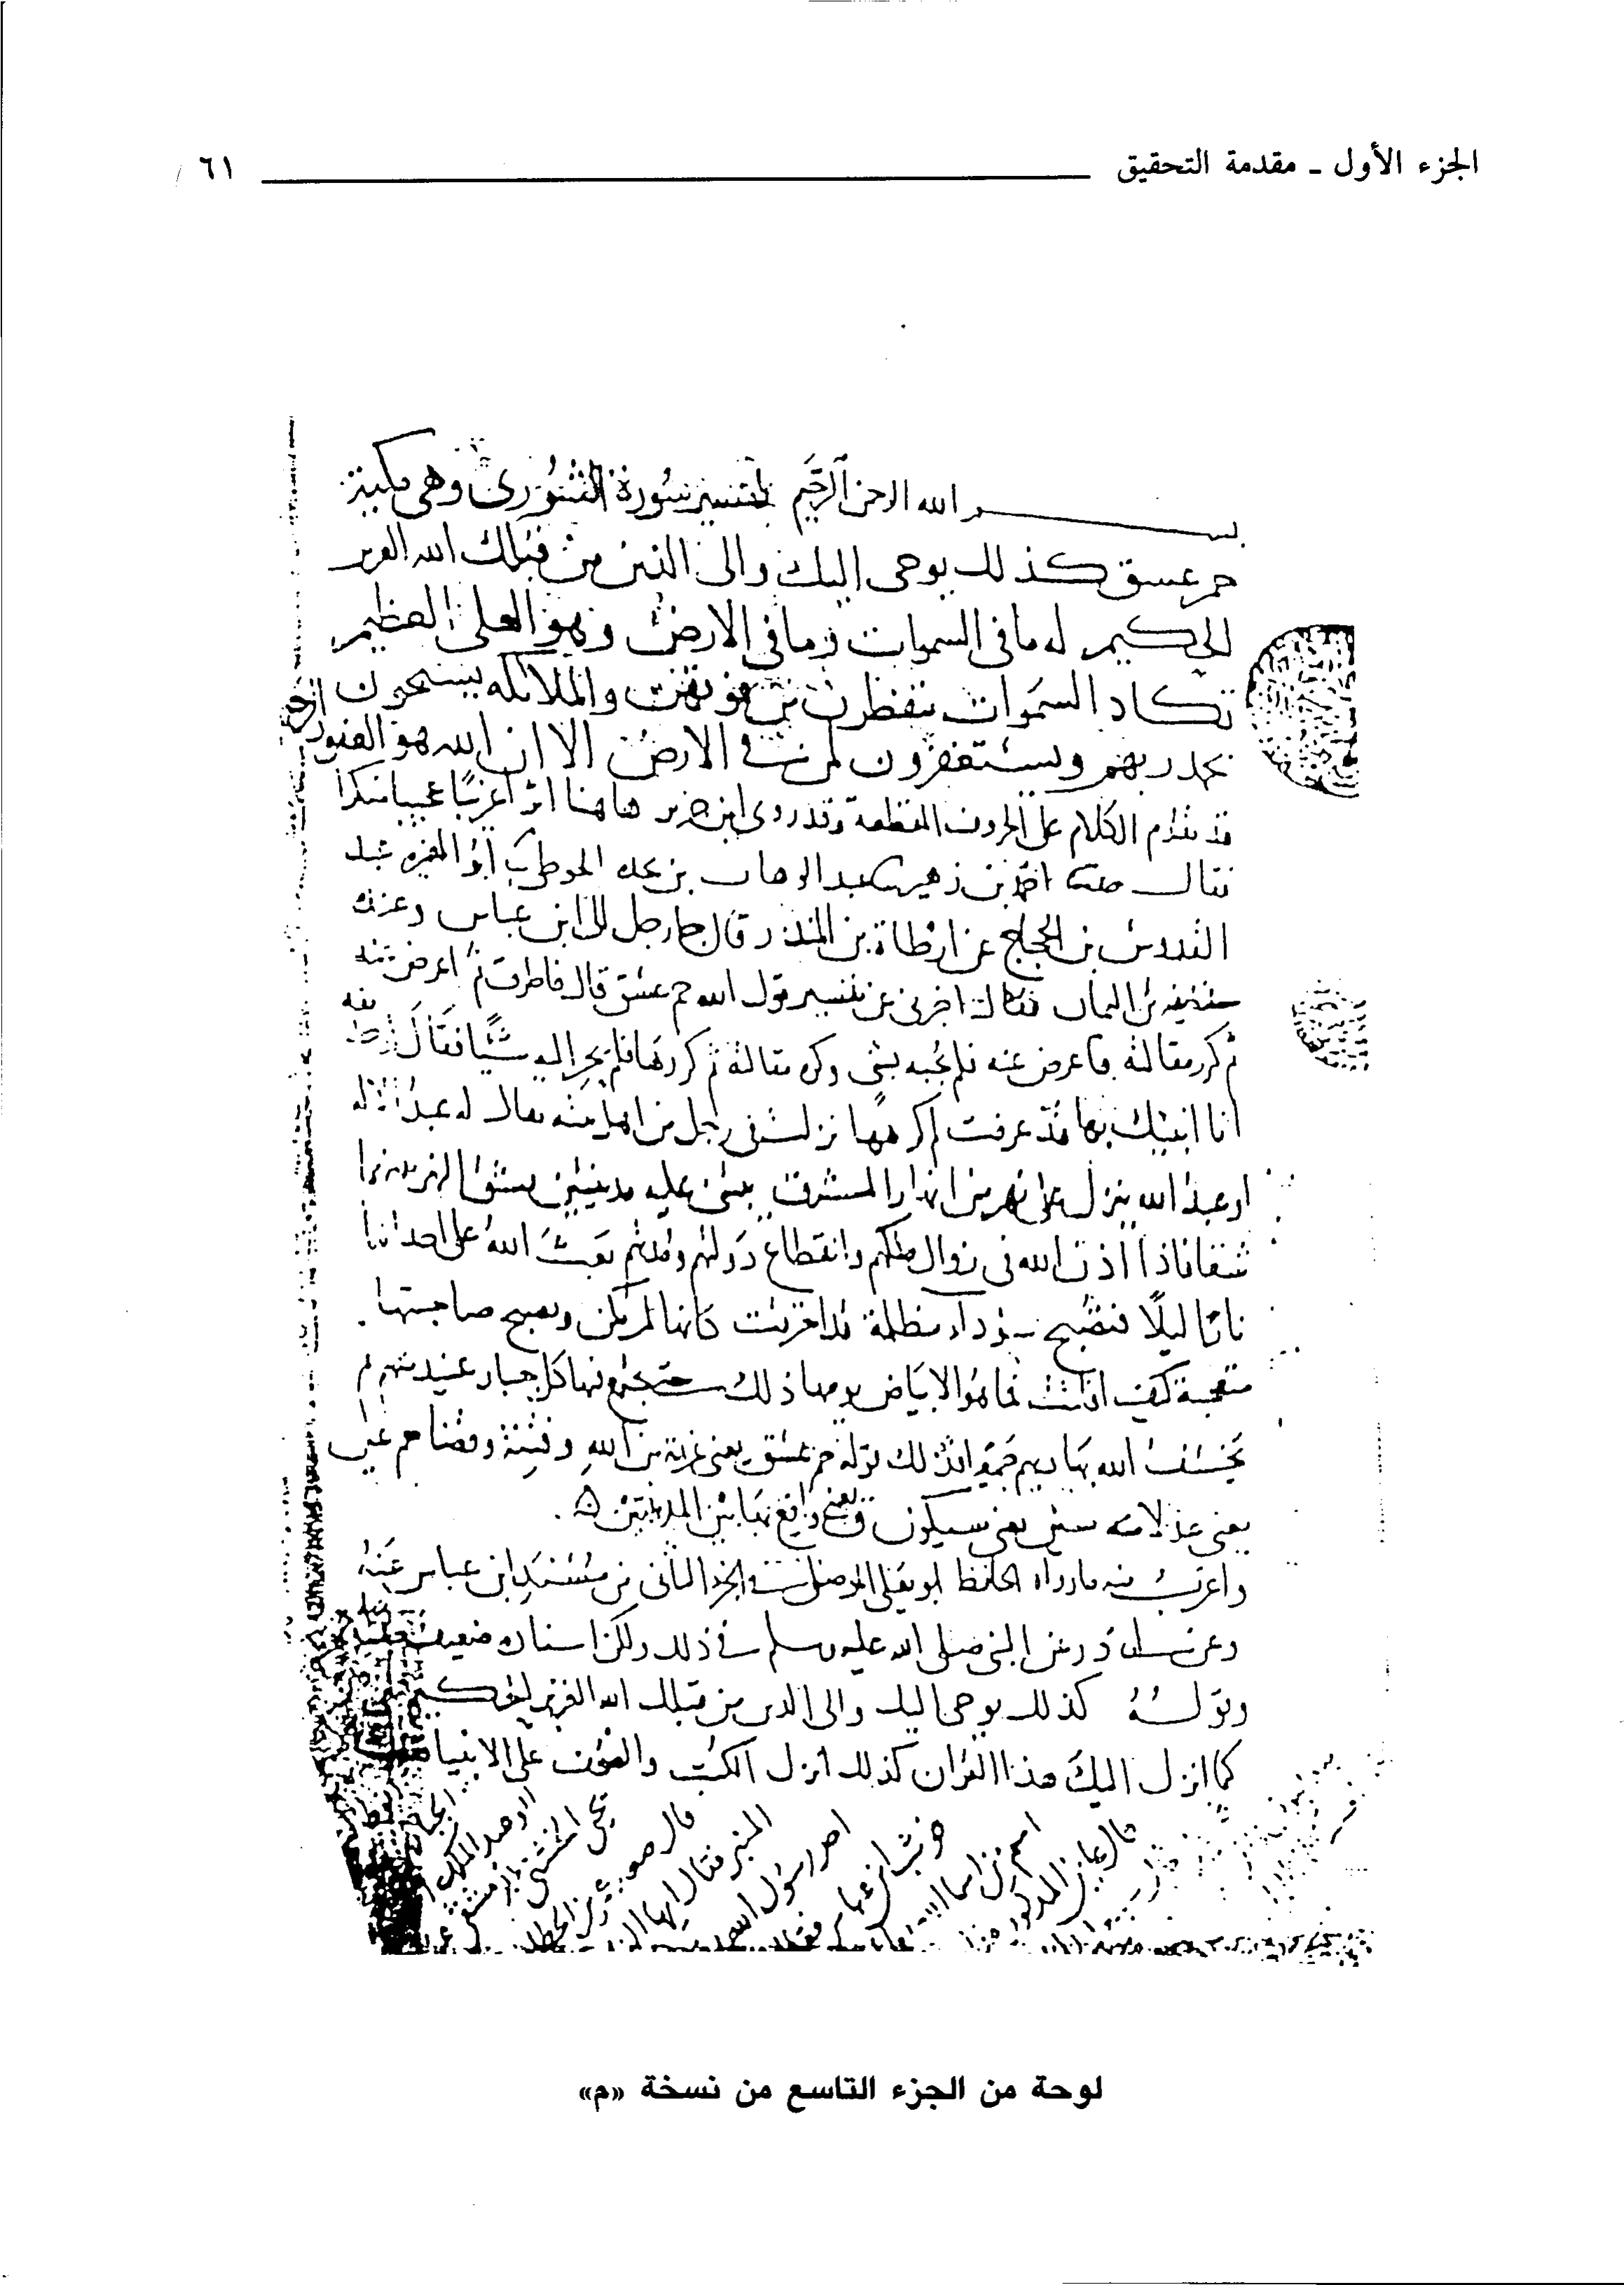 الجزء الأول ـ مقدمة التحقيق ٦١
بسم الله الرحمن الرحيم تفسير سورة الشورى وهي مكية
حم عسق كذلك يوحى اليك والى الذين من قبلك الله العزيز
الحكيم له ما في السموات وما في الارض وهو العلي العظيم
تكاد السموات يتفطرن من فوقهن والملائكه يسبحون
بحمد ربهم ويستغفرون لمن في الارض الا ان الله هو الغفور الرحيم
قد تقدم الكلام على الحروف المقطعة وقد روى ابن جرير هاهنا اثرا غريبا عجيبا منكرا
فقال احمد بن زهير عبد الوهاب بن نجده الحوطي ابو المغيره عبد
القدوس بن الحجاج عن ارطاة بن المنذر قال جا رجل الى ابن عباس وعنده
حذيفه بن اليمان فقال له اخبرني عن تفسير قول الله حم عسق قال فاطرق ثم اعرض عنه
ثم كرر مقالته فاعرض عنه فلم يجبه بشي وكره مقالته ثم كررها فلم يحر اليه شيئا فقال حذيفه
انا انبئك بها قد عرفت لم كرهها نزلت في رجل من اهل بيته يقال له عبد الاله
او عبد الله ينزل على نهر من انهار المشرق يبنى عليه مدينتين يشق النهر بينهما
شقا فاذا اذن الله في زوال ملكهم وانقطاع دولتهم ومدتهم بعث الله على احداهما
نارا ليلا فتصبح سوداء مظلمة قد احترقت كانها لم تكن وتصبح صاحبتها
متعجبة كيف افلتت فما هو الا بياض يومها ذلك حتى يجتمع فيها كل جبار عنيد منهم ثم
يخسف الله بها وبهم جميعا فذلك قوله حم عسق يعني عزيمة من الله وفتنة وقضا حم عين
يعني عدلا منه سين يعني سيكون ق يعني واقع بهاتين المدينتين
واغرب منه ما رواه الحافظ ابو يعلى الموصلي في الجزء الثاني من مسند ابن عباس عنه
وعن ابي ذر عن النبي صلى الله عليه وسلم في ذلك ولكن اسناده ضعيف
وقوله كذلك يوحى اليك والى الذين من قبلك الله العزيز الحكيم
كما انزل اليك هذا القران كذلك انزل الكتب والصحف على الانبيا قبلك
لوحة من الجزء التاسع من نسخة «م»